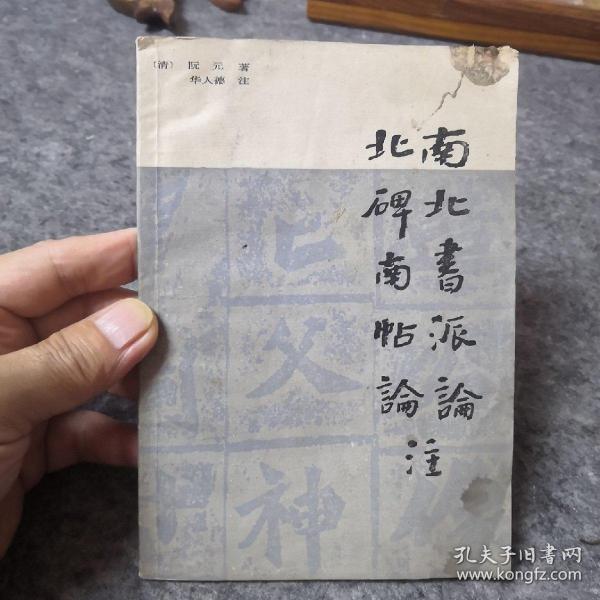 〔清〕 阮元 著
华人德 注
南北書派論
北碑南帖論注
父
神
孔夫子旧书网
www.kongfz.com